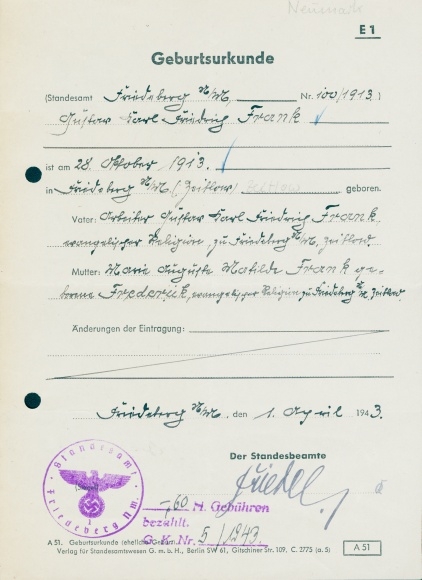 Neumark
E 1
Geburtsurkunde
(Standesamt Friedeberg N/M. Nr. 100/1913.)
Gustav Karl Friedrich Frank
ist am 28. Oktober 1913.
in Friedeberg N/M. (Zeitlow) Zeitlow geboren.
Vater: Arbeiter Gustav Karl Friedrich Frank
evangelischer Religion, zu Friedeberg N/M. Zeitlow.
Mutter: Marie Auguste Matilde Frank ge-
borene Frederick, evangelischer Religion zu Friedeberg N/M. Zeitlow.
Änderungen der Eintragung:
Friedeberg N/M., den 1. April 1943.
Der Standesbeamte
(Siegel)
Standesamt Friedeberg Nm.
1
-,60 M. Gebühren
bezahlt.
G. K. Nr. 5/1243.
A 51. Geburtsurkunde
Verlag für Standesamtswesen G. m. b. H., Berlin SW 61, Gitschiner Str. 109. C. 2775 (a. 5)
A 51